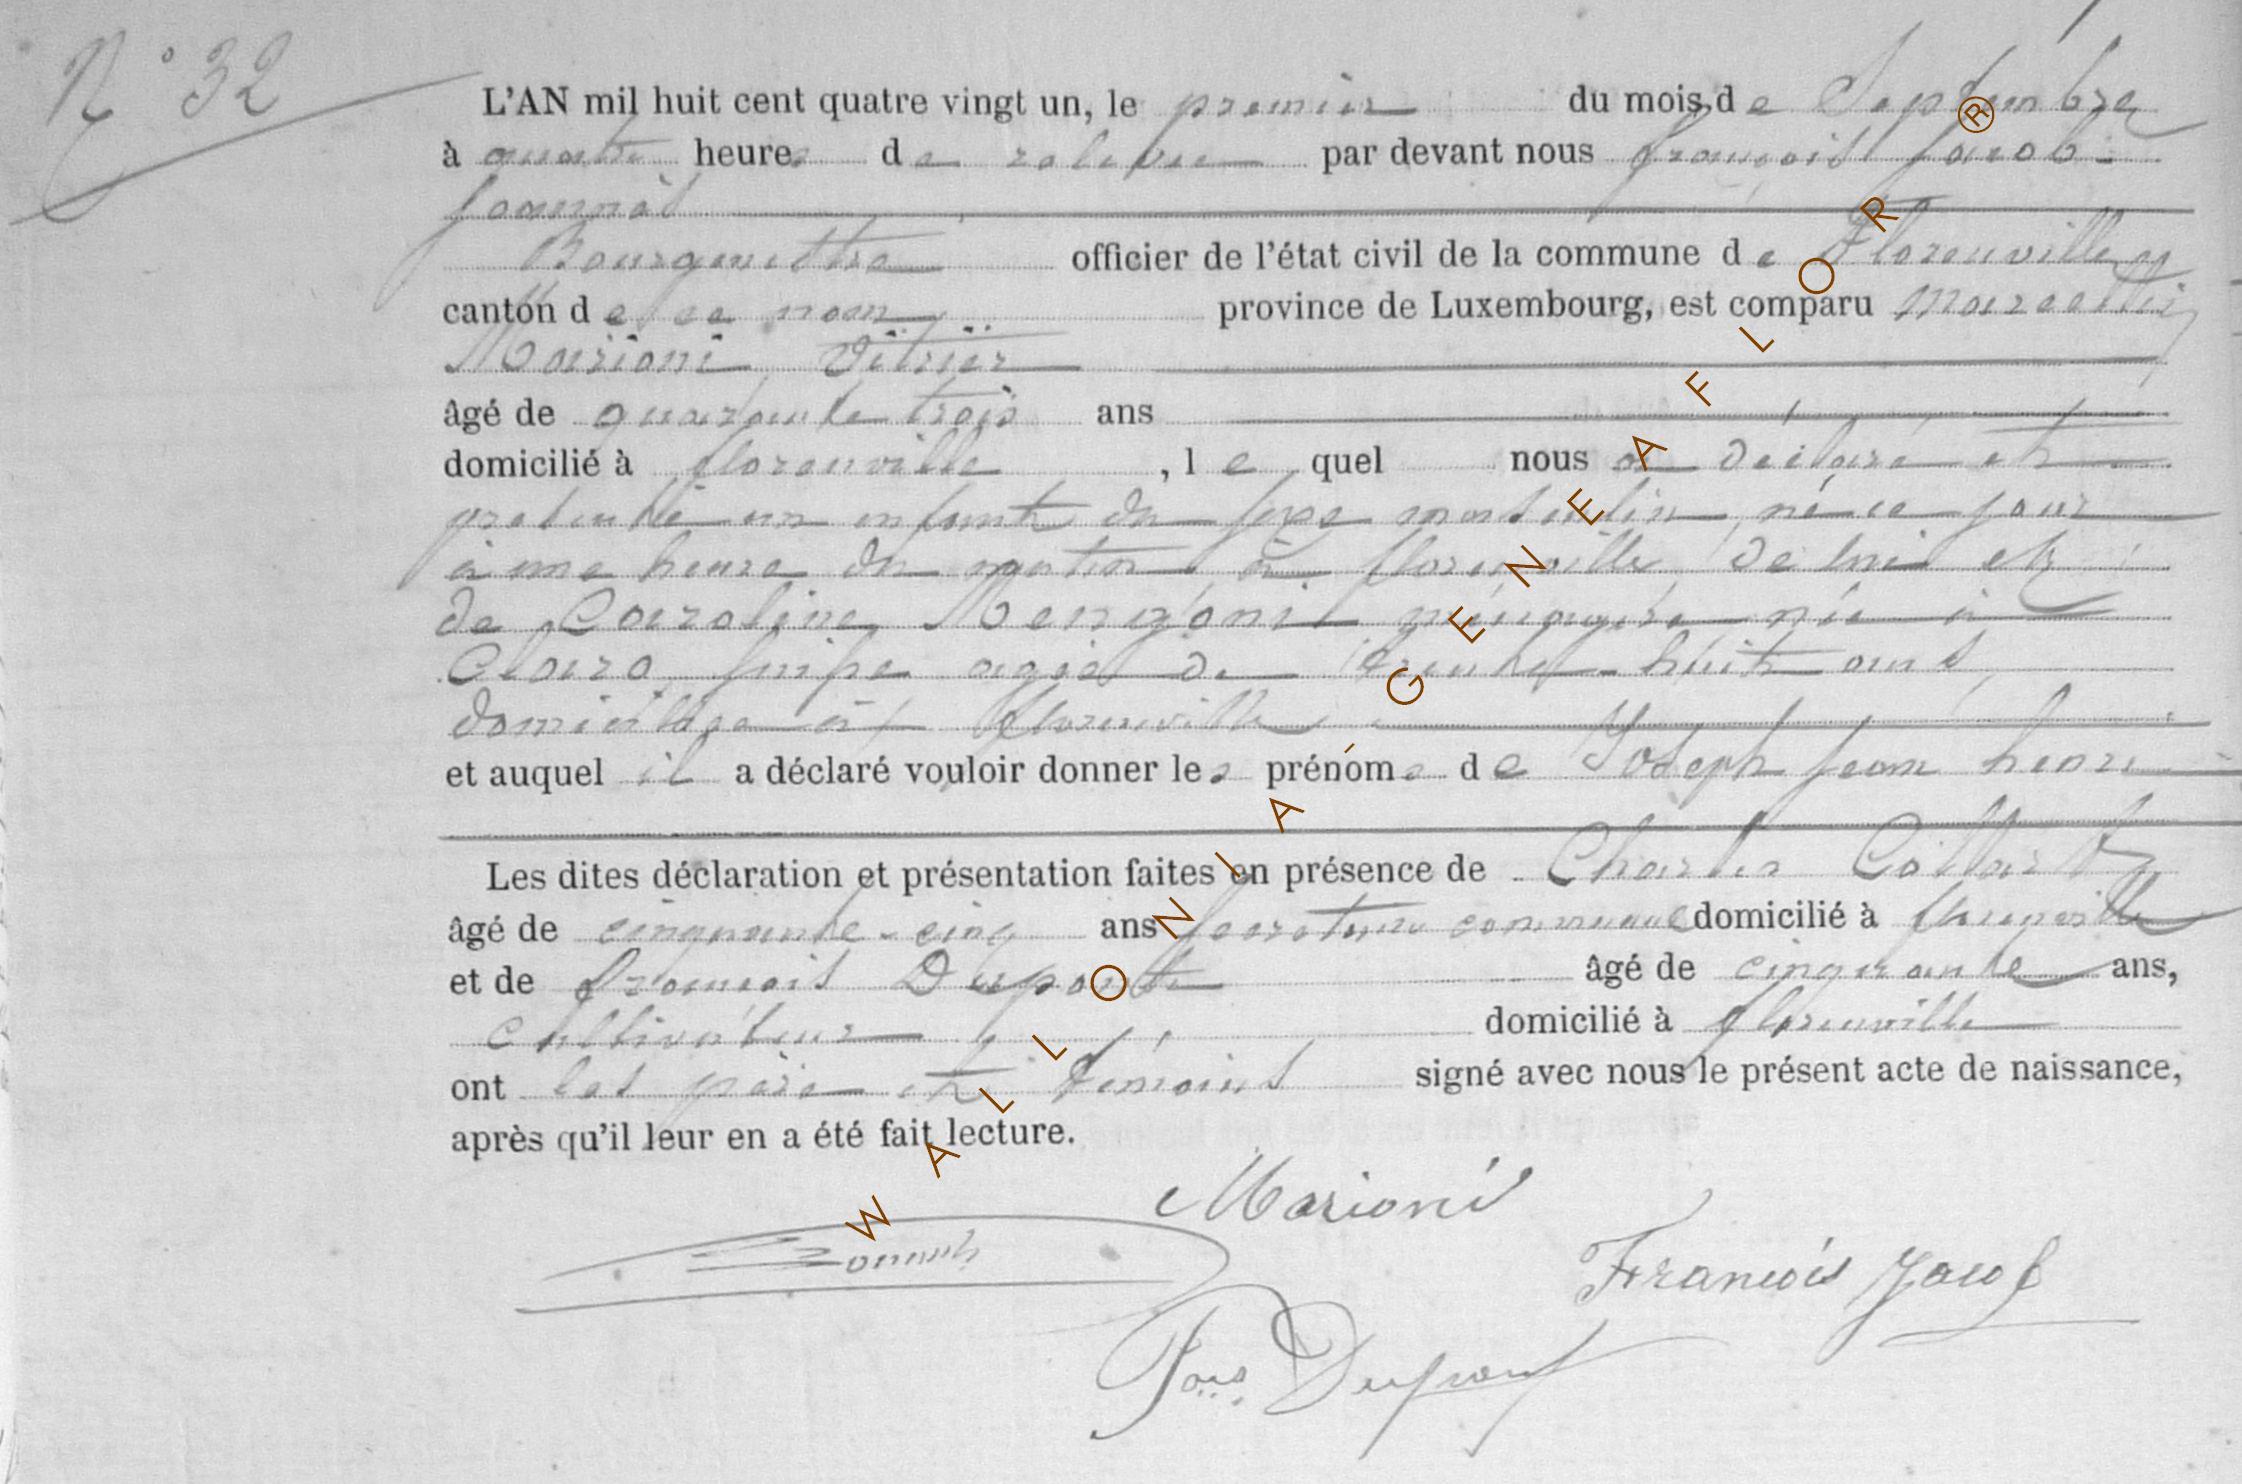 N° 32
L'AN mil huit cent quatre vingt un, le premier du mois de Septembre
à quatre heures de relevée par devant nous françois Jacob-
Jeannot
Bourgmettre officier de l'état civil de la commune de Florenville
canton de ce nom province de Luxembourg, est comparu
Marioni Vitrier
âgé de quarante trois ans
domicilié à florenville, le quel nous a déclaré et
présenté un enfant du sexe masculin, né ce jour
à une heure du matin à florenville, de lui et
de Caroline ménagère née à
Claro, suisse agée de trente-huit ans
domiciliée à florenville
et auquel il a déclaré vouloir donner les prénoms de Joseph Jean henri
Les dites déclaration et présentation faites en présence de Charles
âgé de cinquante-cinq ans secrétaire communal domicilié à florenville
et de françois Dupont âgé de cinquante ans,
cultivateur domicilié à florenville
ont les père et témoins signé avec nous le présent acte de naissance,
après qu'il leur en a été fait lecture.
Marioni
François Jacob
Dupont
WALLONIA - GENEAFLOR®